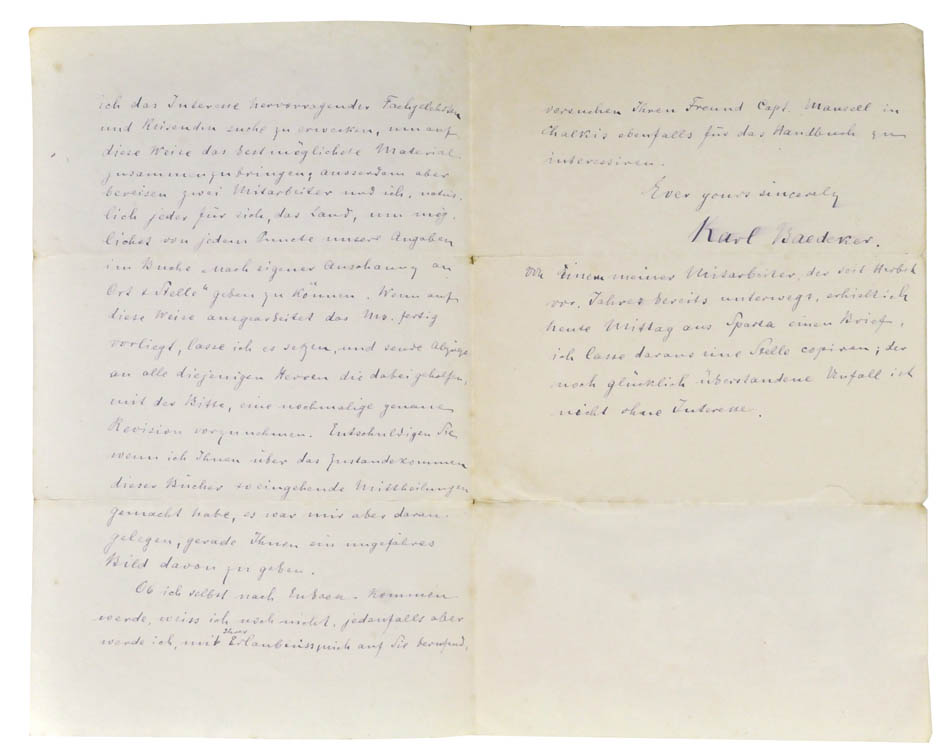 ich das Interesse hervorragender Fachgelehrten
und Reisenden suche zu erwecken, um auf
diese Weise das bestmöglichste Material
zusammenzubringen; ausserdem aber
bereisen zwei Mitarbeiter und ich, natür-
lich jeder für sich, das Land, um mög-
lichst von jedem Puncte unsere Angaben
im Buche „nach eigener Anschauung an
Ort & Stelle“ geben zu können. Wenn auf
diese Weise ausgearbeitet das Ms. fertig
vorliegt, lasse ich es setzen, und sende Abzüge
an alle diejenigen Herren die dabei geholfen,
mit der Bitte, eine nochmalige genaue
Revision vorzunehmen. Entschuldigen Sie
wenn ich Ihnen über das Zustandekommen
dieser Bücher so eingehende Mittheilungen
gemacht habe, es war mir aber daran
gelegen, gerade Ihnen ein ungefähres
Bild davon zu geben.
Ob ich selbst nach Euboea kommen
werde, weiss ich noch nicht, jedenfalls aber
werde ich, mit Ihrer Erlaubniss, mich auf Sie berufend,
versuchen Ihren Freund Capt. Mansell in
Chalkis ebenfalls für das Handbuch zu
interessiren.
Ever yours sincerely
Karl Baedeker.
Einem meiner Mitarbeiter, der seit Herbst
vor. Jahres bereits unterwegs, erhielt ich
heute Mittag aus Sparta einen Brief,
ich lasse daraus eine Stelle copiren; der
noch glücklich überstandene Unfall ist
nicht ohne Interesse.